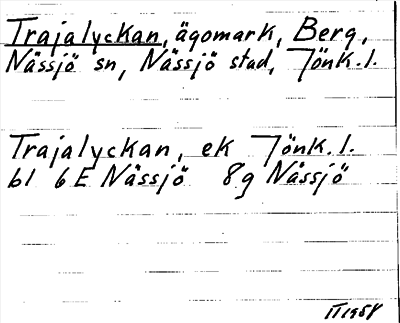 Trajalyckan, ägomark, Berg,
Nässjö sn, Nässjö stad, Jönk.l.
Trajalyckan, ek Jönk.l.
bl 6E Nässjö 8g Nässjö
IT 1958